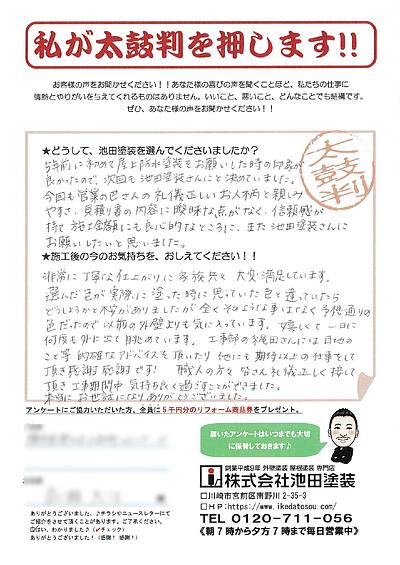 私が太鼓判を押します!!
お客様の声をお聞かせください!!あなた様の喜びの声を聞くことほど、私たちの仕事に
情熱とやりがいを与えてくれるものはありません。いいこと、悪いこと、どんなことでも結構です。
ぜひ、あなた様の声をお聞かせください!!
太鼓判
★どうして、池田塗装を選んでくださいましたか?
5年前に初めて屋上防水塗装をお願いした時の印象が
良かったので、次回も池田塗装さんにと決めていました。
今回も営業の さんの礼儀正しいお人柄と親しみ
やすさ、見積り書の内容に曖昧な点がなく、信頼感が
持て 施工金額にも良心的なところに、また池田塗装さんに
お願いしたいと思いました。
★施工後の今のお気持ちを、おしえてください!!
非常に丁寧な仕上がりに家族共々 大変満足しています。
選んだ色が実際に塗った時に思っていた色と違っていたら
どうしようかと不安がありましたが 全くそのような事はなく 予想通りの
色だったので以前の外壁よりも気に入っています。嬉しくて一日に
何度も外に出て眺めています。工事部の縄田さんには目地の
こと等 的確なアドバイスを頂いたり 他にも期待以上の仕事をして
頂き感謝感謝です! 職人の方々皆さん礼儀正しく接して
頂き工事期間中 気持ち良く過ごすことができました。
本当にお世話になりありがとうございました。
アンケートにご協力いただいた方、全員に5千円分のリフォーム商品券をプレゼント。
頂いたアンケートはいつまでも大切
に保管しております♪
創業平成8年 外壁塗装 屋根塗装 専門店
株式会社池田塗装
川崎市宮前区南野川 2-35-3
HP:https://www.ikedatosou.com/
TEL 0120-711-056
《朝7時から夕方7時まで毎日営業中》
ありがとうございました。♪チラシやニュースレターにて
ご紹介をさせて頂くことがあります。ご了承ください。
はい、わかりました♪(✓チェック)
ありがとうございました!(感謝!感謝!)